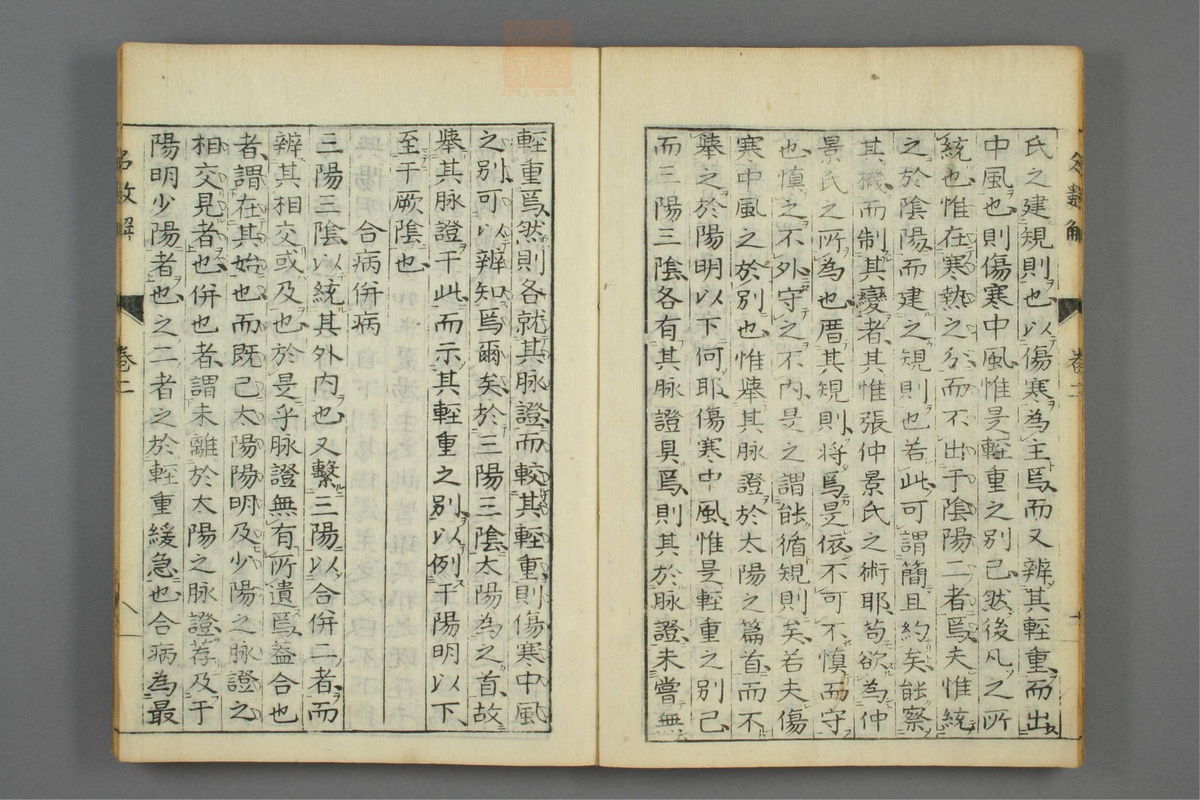 氏之建規則也以傷寒為主焉而又辨其輕重而出
中風也則傷寒中風惟是輕重之別已然後凡之所
統也惟在寒熱之分而不出于陰陽二者焉夫惟統
之於陰陽而建之規則也若此可謂簡且約矣能察
其機而制其變者其惟張仲景氏之術耶苟欲為仲
景氏之所為也厝其規則將焉是依不可不慎而守
也慎之不外守之不內是之謂能循規則矣若夫傷
寒中風之於別也惟舉其脉證於太陽之篇首而不
舉之於陽明以下何耶傷寒中風惟是輕重之別已
而三陽三陰各有其脉證具焉則其於脉證未嘗無
輕重焉然則各就其脉證而較其輕重則傷寒中風
之別可以辨知焉爾矣於三陽三陰太陽為之首故
舉其脉證于此而示其輕重之別以例于陽明以下
至于厥陰也
合病併病
三陽三陰以統其外內也又繫三陽以合併二者而
辨其相交或及也於是乎脉證無有所遺焉蓋合也
者謂在其始也而既已太陽陽明及少陽之脉證之
相交見者也併也者謂未離於太陽之脉證荐及于
陽明少陽者也之二者之於輕重緩急也合病為最
名數解
卷二